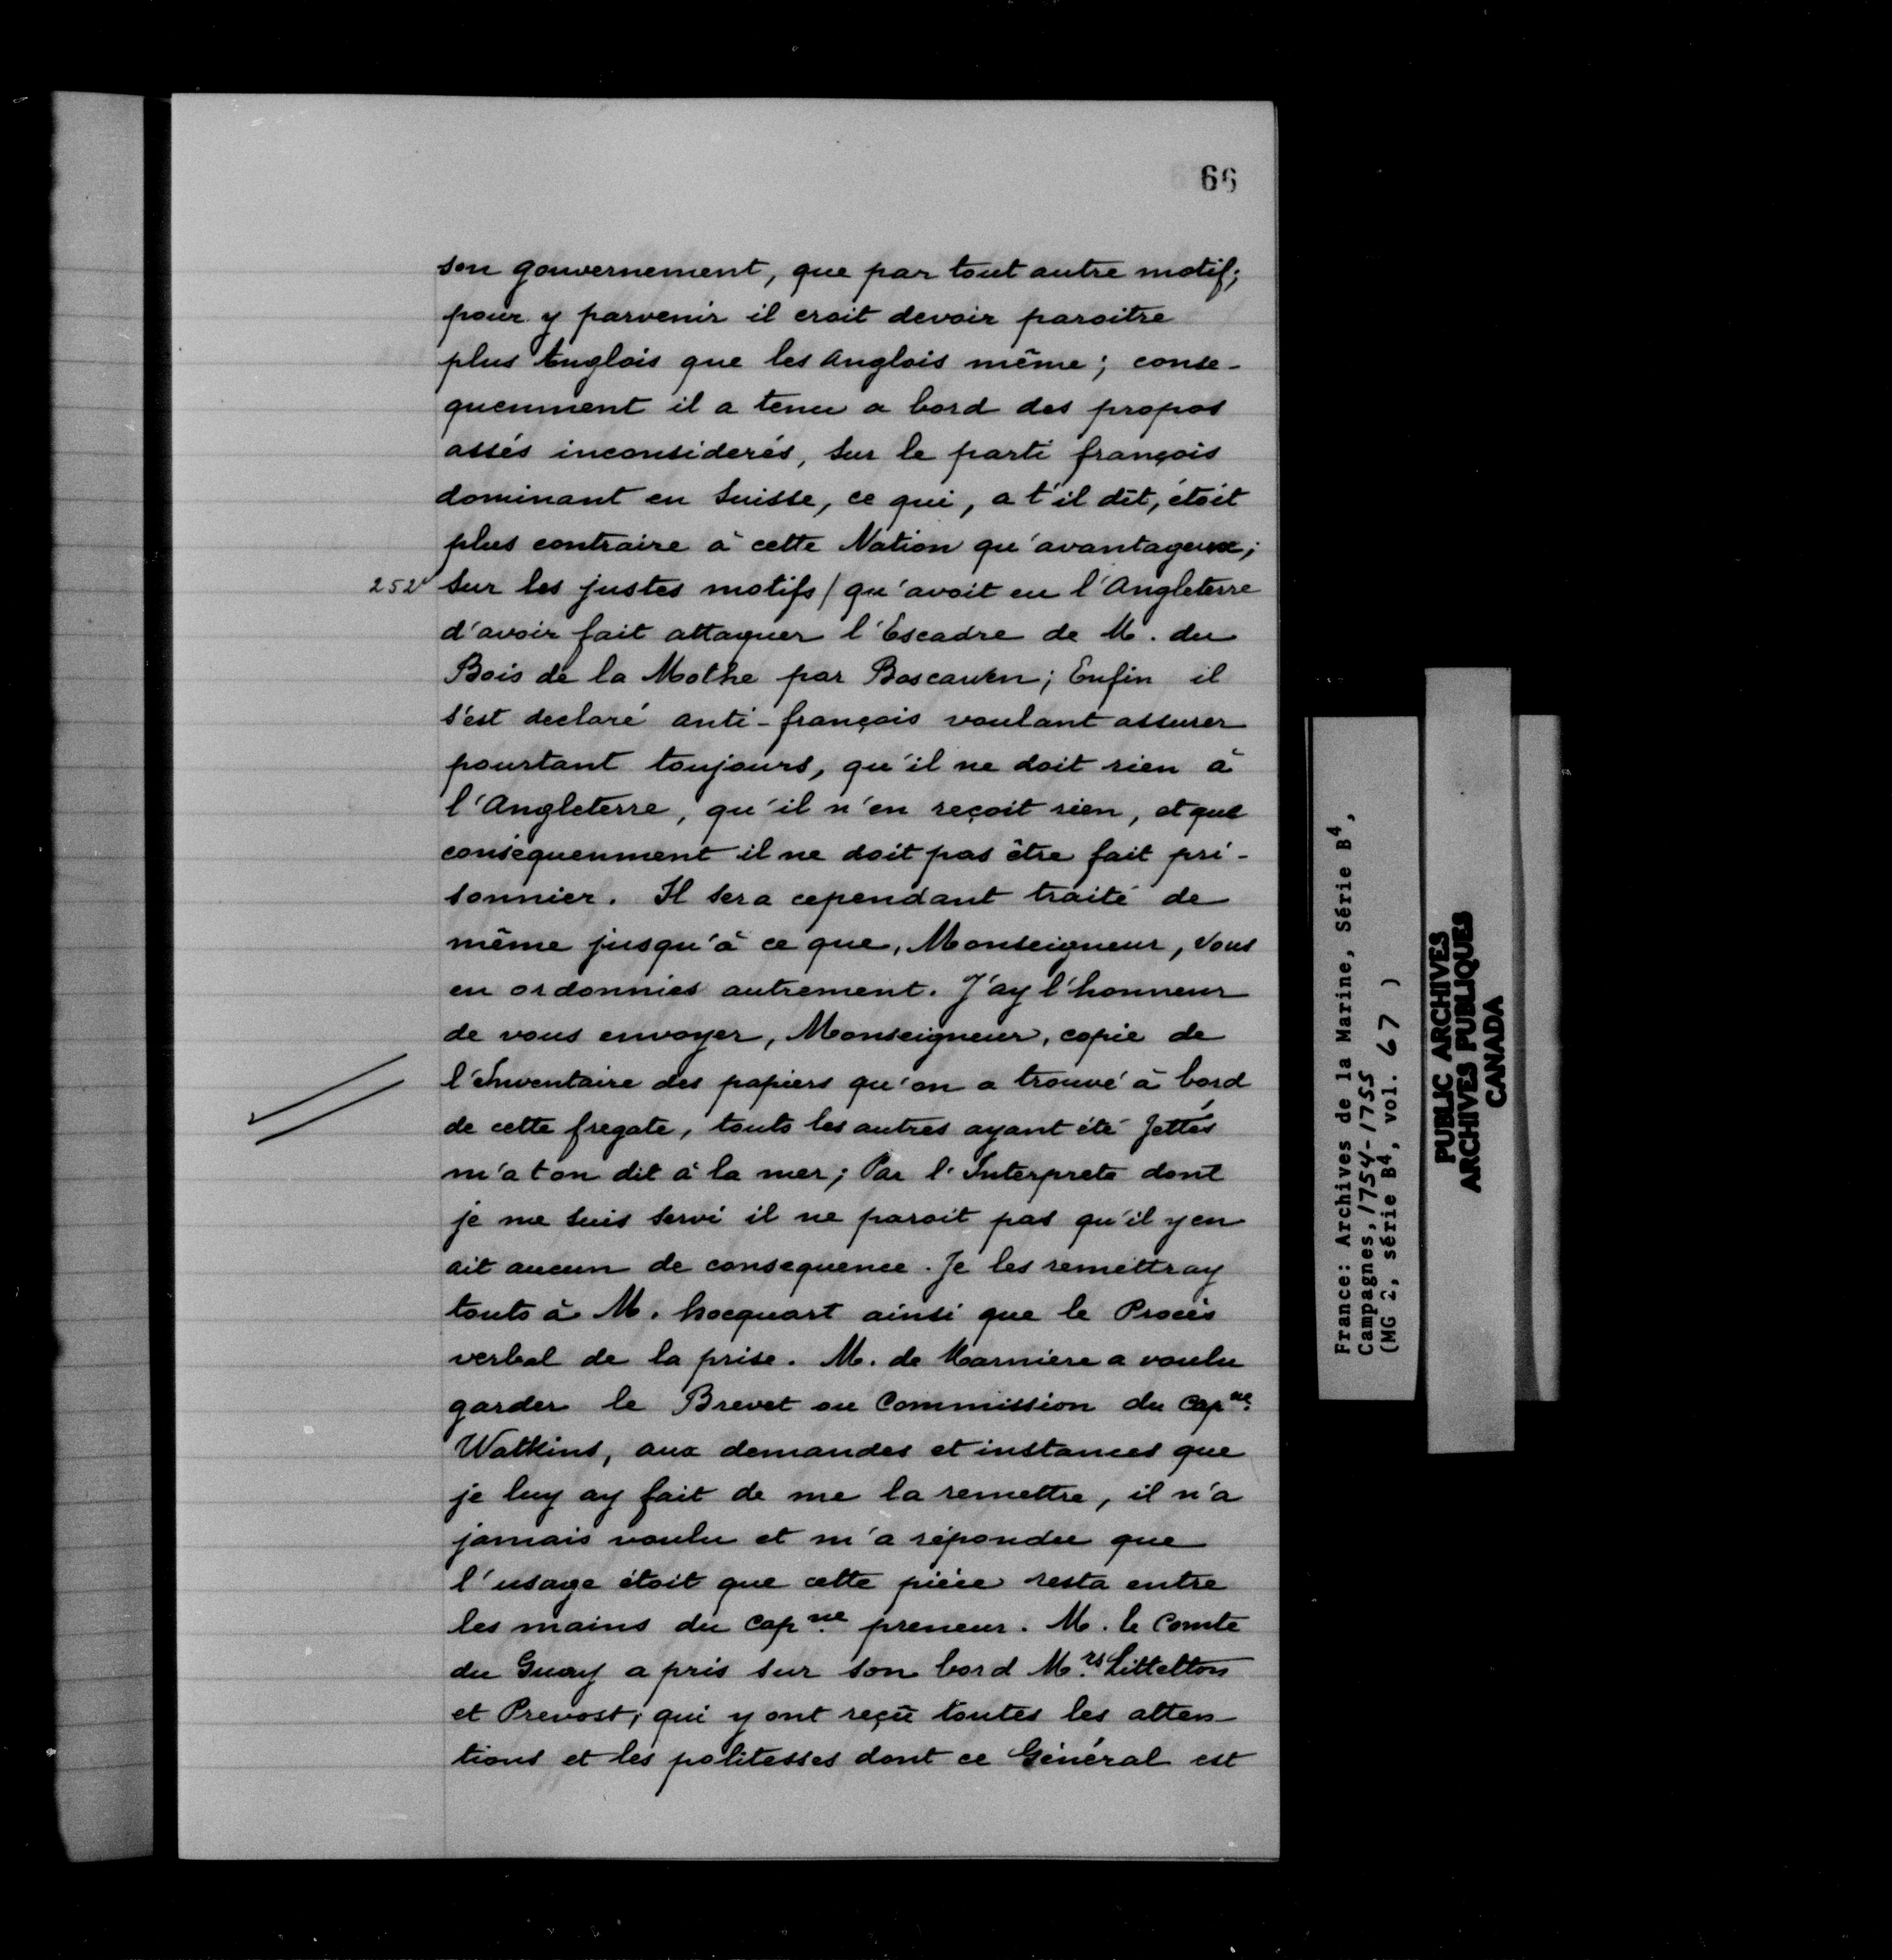 66
son gouvernement, que par tout autre motif;
pour y parvenir il croit devoir paroitre
plus Anglois que les Anglois même; conse-
quemment il a tenu a bord des propos
assés inconsiderés, sur le parti françois
dominant en Suisse, ce qui, a t'il dit, étoit
plus contraire à cette Nation qu'avantageux;
252v sur les justes motifs / qu'avoit eu l'Angleterre
d'avoir fait attaquer l'Escadre de M. du
Bois de la Mothe par Boscawen; Enfin il
s'est declaré anti-françois voulant assurer
pourtant toujours, qu'il ne doit rien à
l'Angleterre, qu'il n'en reçoit rien, et que
conséquemment il ne doit pas être fait pri-
sonnier. Il sera cependant traité de
même jusqu'à ce que, Monseigneur, vous
en ordonniés autrement. J'ay l'honneur
de vous envoyer, Monseigneur, copie de
l'Inventaire des papiers qu'on a trouvé à bord
de cette fregate, touts les autres ayant été Jettés
m'a t on dit à la mer; Par l'Interprete dont
je me suis servi il ne paroit pas qu'il y en
ait aucun de consequence. Je les remettray
touts à M. hocquart ainsi que le Procès
verbal de la prise. M. de Marniere a voulu
garder le Brevet ou Commission du Capne.
Watkins, aux demandes et instances que
je luy ay fait de me la remettre, il n'a
jamais voulu et m'a répondu que
l'usage étoit que cette pièce resta entre
les mains du Capne. preneur. M. le Comte
du Guay a pris sur son bord Mrs. Littelton
et Prevost; qui y ont reçû toutes les atten-
tions et les politesses dont ce Général est
France: Archives de la Marine, Série B4,
Campagnes, 1754-1755
(MG 2, série B4, vol. 67 )
PUBLIC ARCHIVES
ARCHIVES PUBLIQUES
CANADA